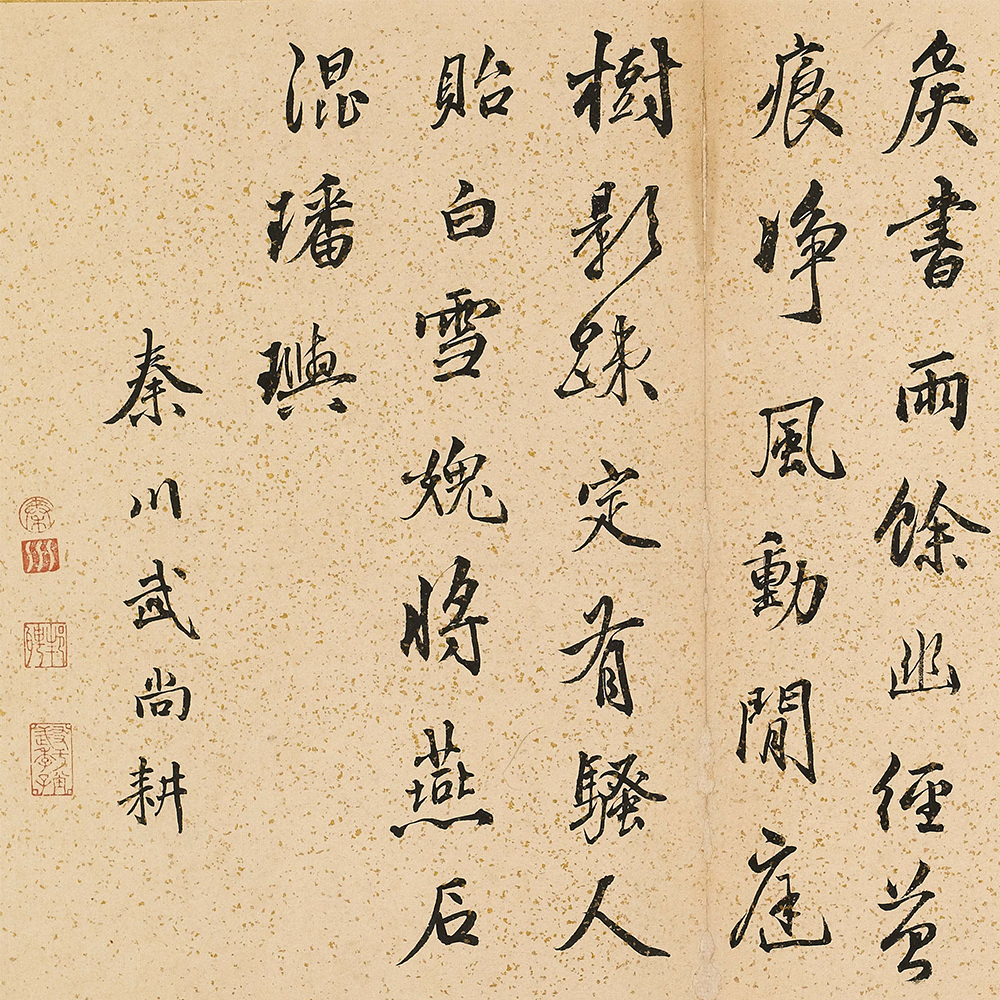 侯書雨餘幽徑苔
痕淨風動閒庭
樹影疎定有騷人
貽白雪媿將燕石
混璠璵
秦川武尚耕
秦
川